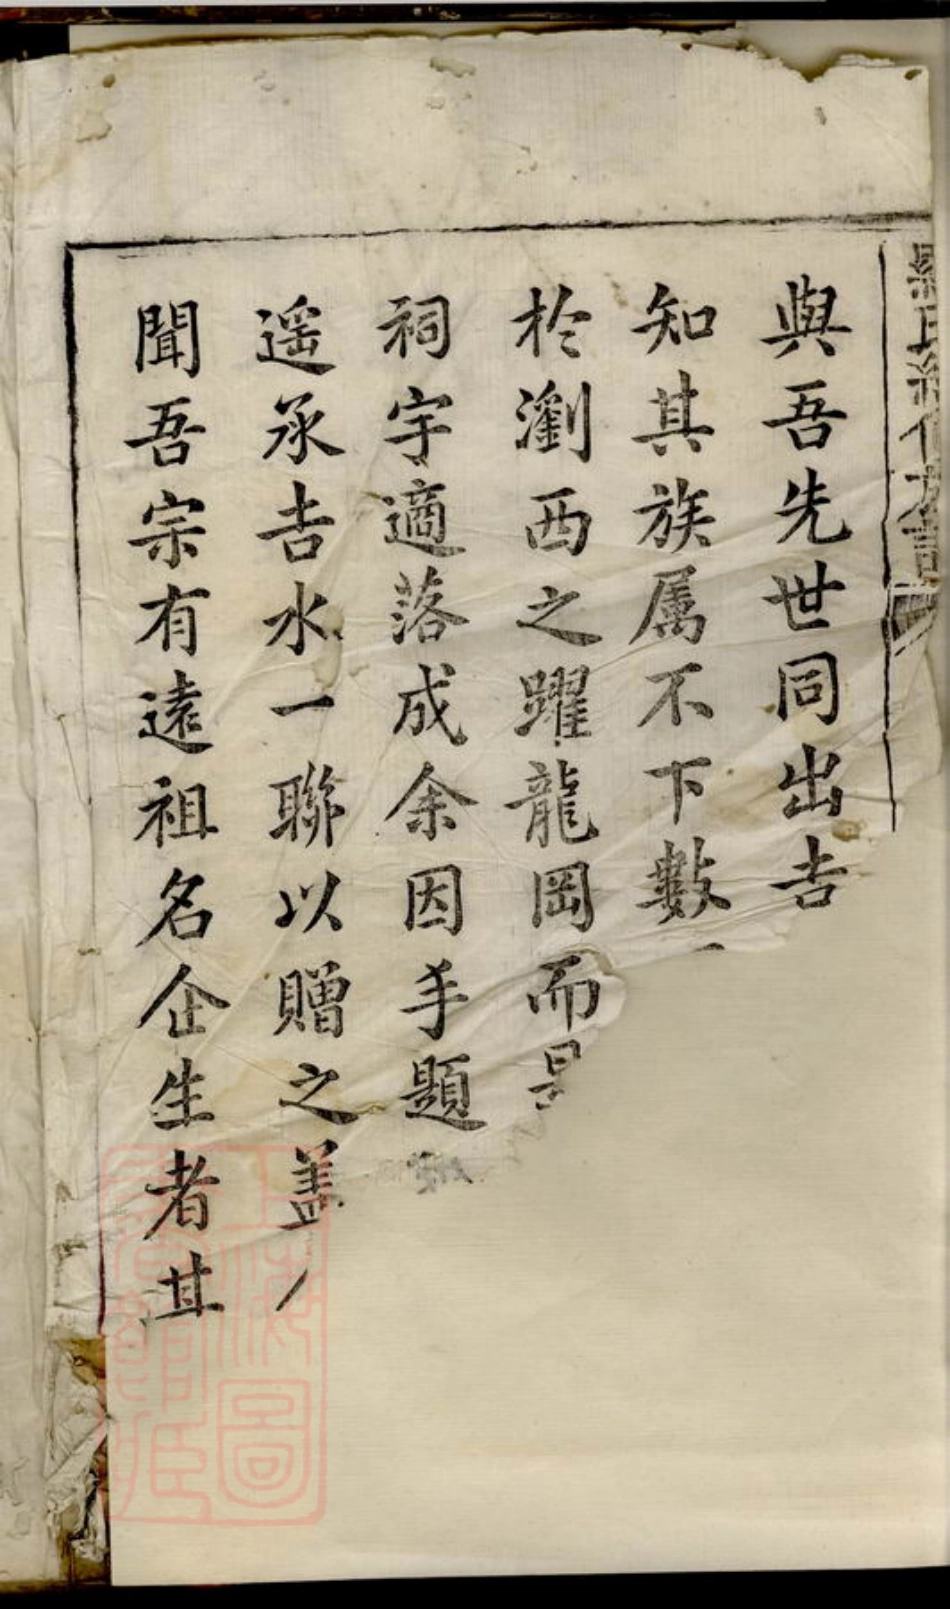 與吾先世同出吉
知其族属不下數
於瀏西之躍龍岡而
祠宇適落成余因手題
遥承吉水一聯以贈之盖
聞吾宗有遠祖名企生者其